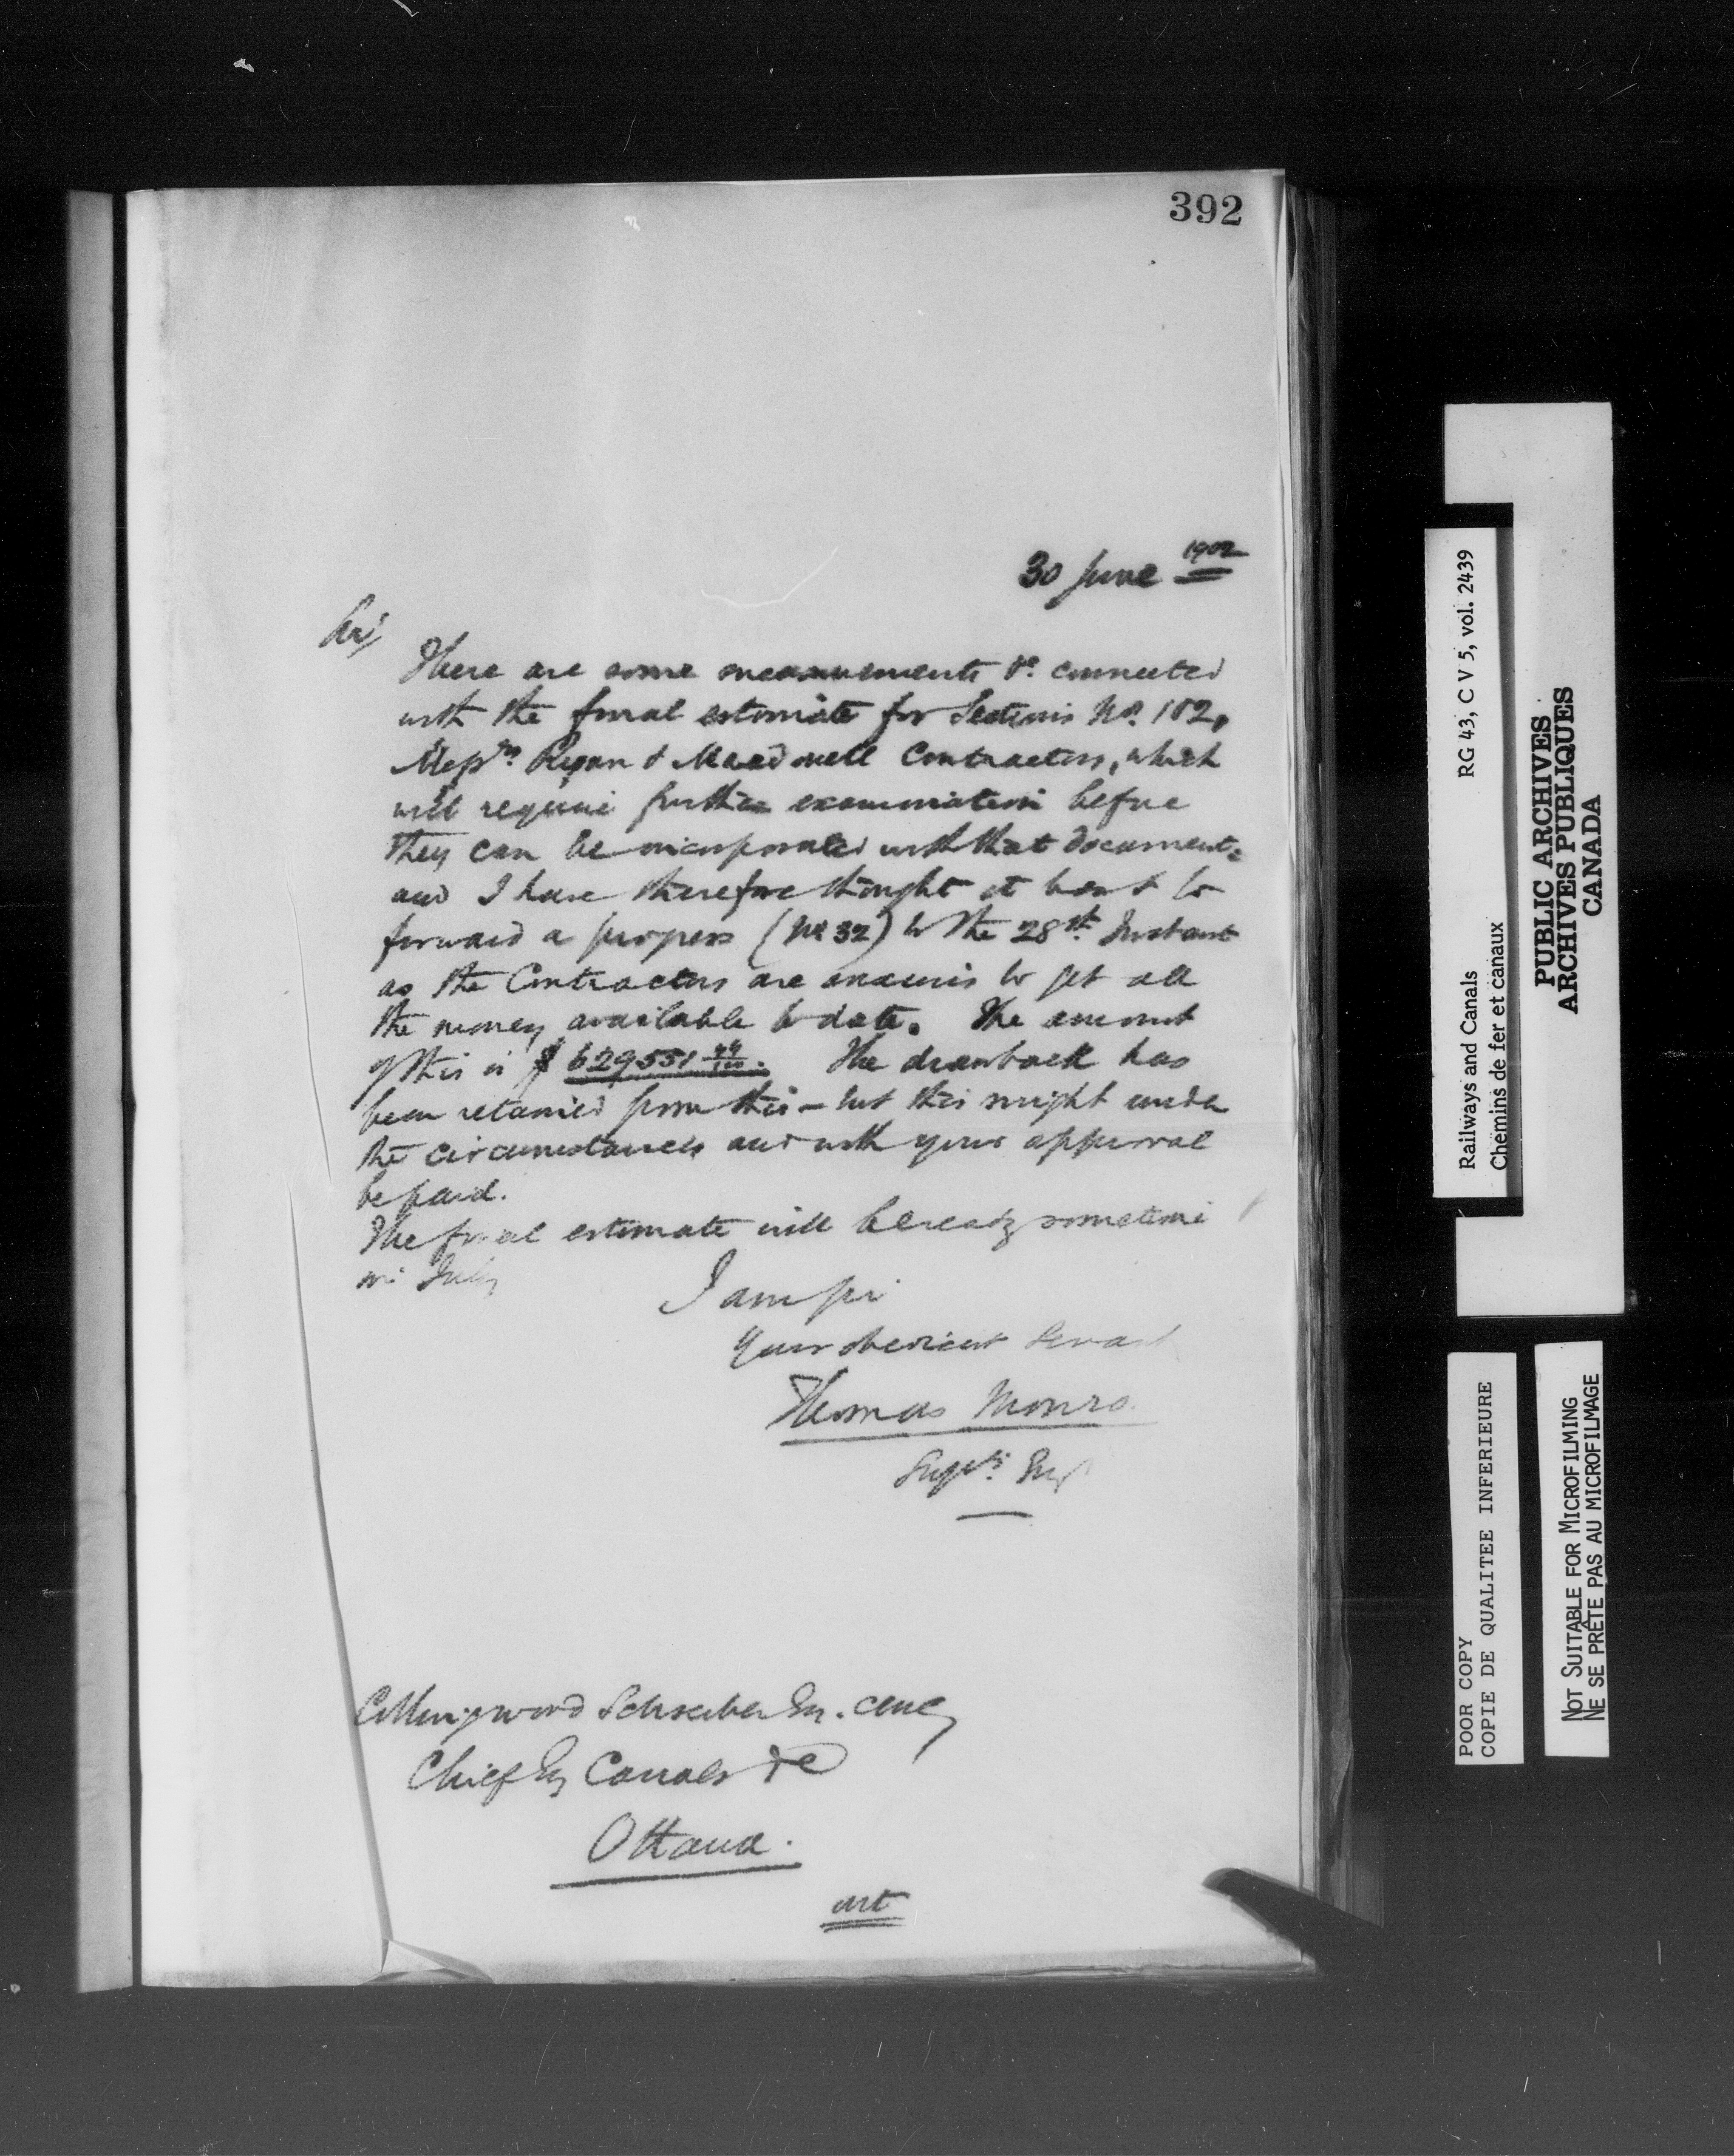 392
30 June 1902
Sir,
There are some measurements &c connected
with the final estimate for Sections No. 1&2,
Messrs. Ryan & Macdonell Contractors, which
will require further examination before
they can be incorporated with that document
and I have therefore thought it best to
forward a progress (No 32) to the 28th Instant
as the Contractors are anxious to get all
the money available to date. The amount
of this is $ 629551 The drawback has
been retained from this - but this might under
the circumstances and with your approval
be paid.
The final estimate will be ready sometime
in July
I am sir
Your obedient Servant
Thomas Monro
Suptg. Eng
Collingwood Schreiber Esq. CMG,
Chief Eng Canals &c
Ottawa.
Railways and Canals RG 43, C V 5, vol. 2439
Chemins de fer et canaux
PUBLIC ARCHIVES
ARCHIVES PUBLIQUES
CANADA
POOR COPY
COPIE DE QUALITEE INFERIEURE
NOT SUITABLE FOR MICROFILMING
NE SE PRÊTE PAS AU MICROFILMAGE